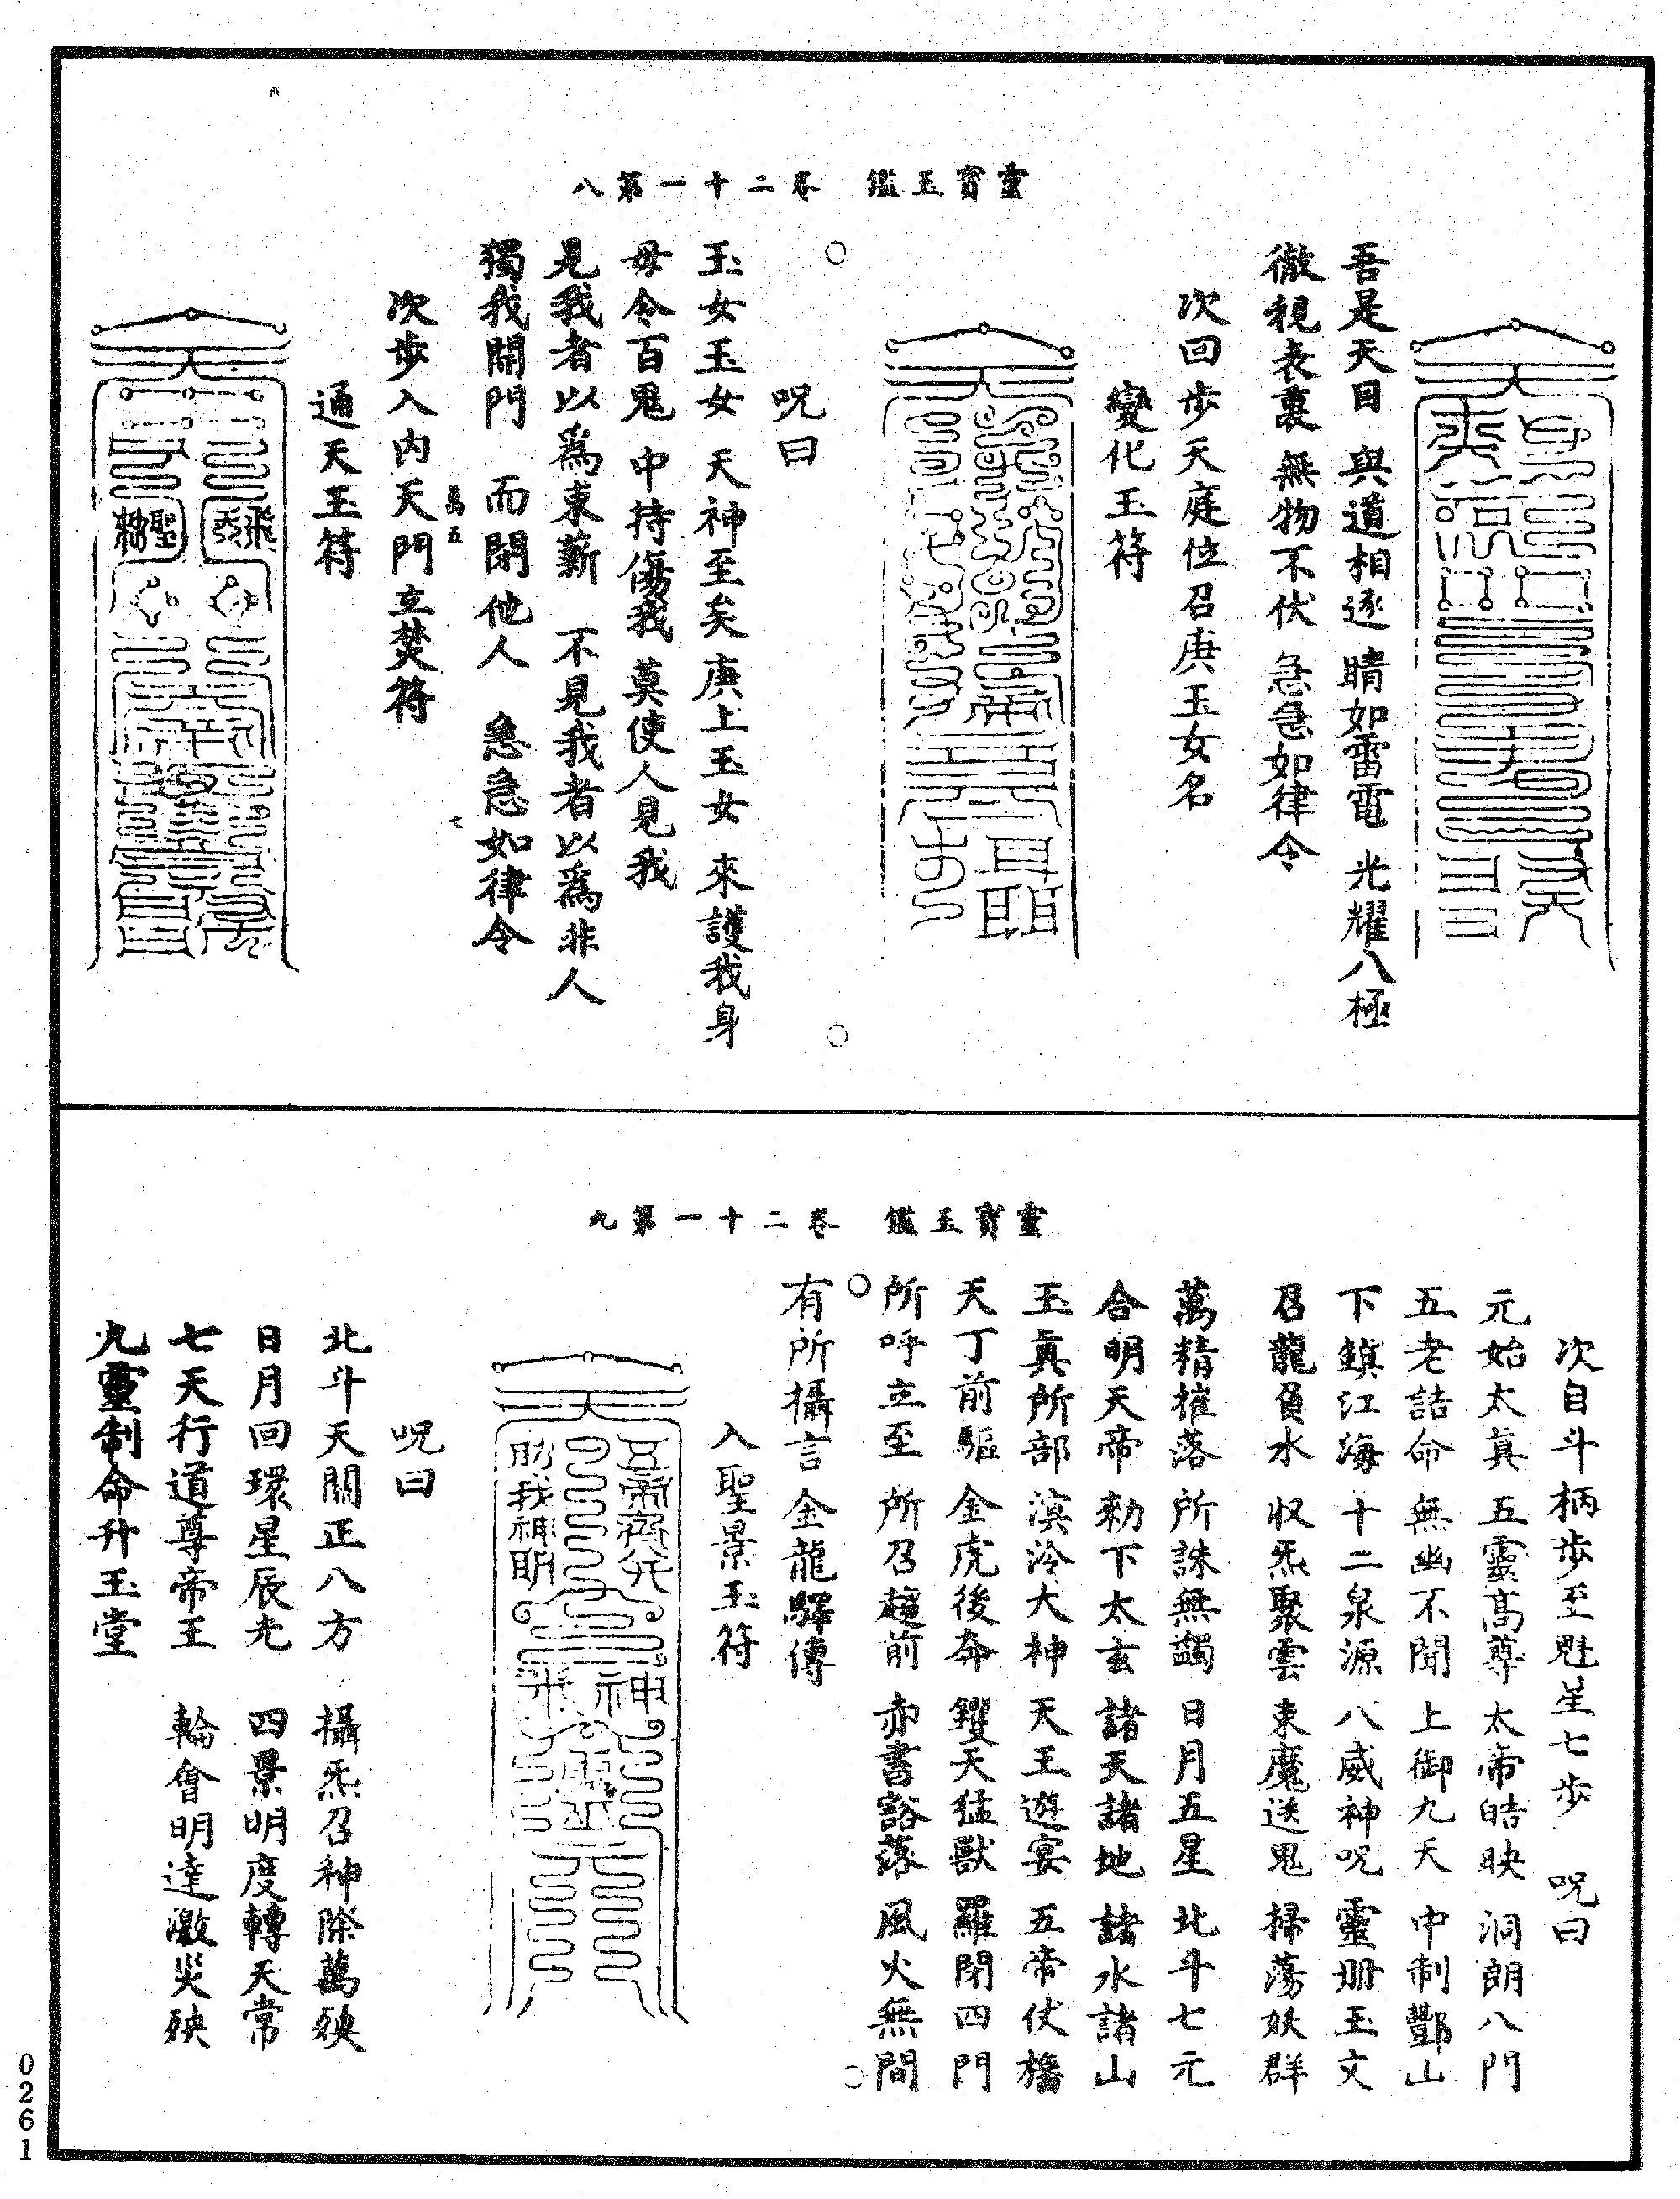 靈寶玉鑑　卷二十一第八
吾是天目　與道相逐　睛如雷電　光耀八極
徹視表裏　無物不伏　急急如律令
次回步天庭位召庚玉女名
變化玉符
呪曰
玉女玉女　天神至矣　庚上玉女　來護我身
毋令百鬼　中持傷我　莫使人見我
見我者以為東薪　不見我者以為非人
獨我開門　而閉他人　急急如律令
萬五　七
次步入內天門立焚符
通天玉符
靈寶玉鑑　卷二十一第九
次自斗柄步至魁星七步　呪曰
元始太真　五靈高尊　太帝皓映　洞朗八門
五老詰命　無幽不聞　上御九天　中制酆山
下鎮江海　十二泉源　八威神呪　靈册玉文
召龍負水　収炁聚雲　束魔送鬼　掃蕩妖群
萬精摧落　所誅無蠲　日月五星　北斗七元
合明天帝　勑下太玄　諸天諸地　諸水諸山
玉真所部　溟泠大神　天王遊宴　五帝仗旛
天丁前驅　金虎後奔　钁天猛獸　羅閉四門
所呼立至　所召趨前　赤書豁落　風火無間
有所攝言　金龍驛傳
入聖景玉符
呪曰
北斗天關正八方　攝炁召神除萬殃
日月回環星辰光　四景明度轉天常
七天行道尊帝王　輪會明達激災殃
九靈制命升玉堂
0261